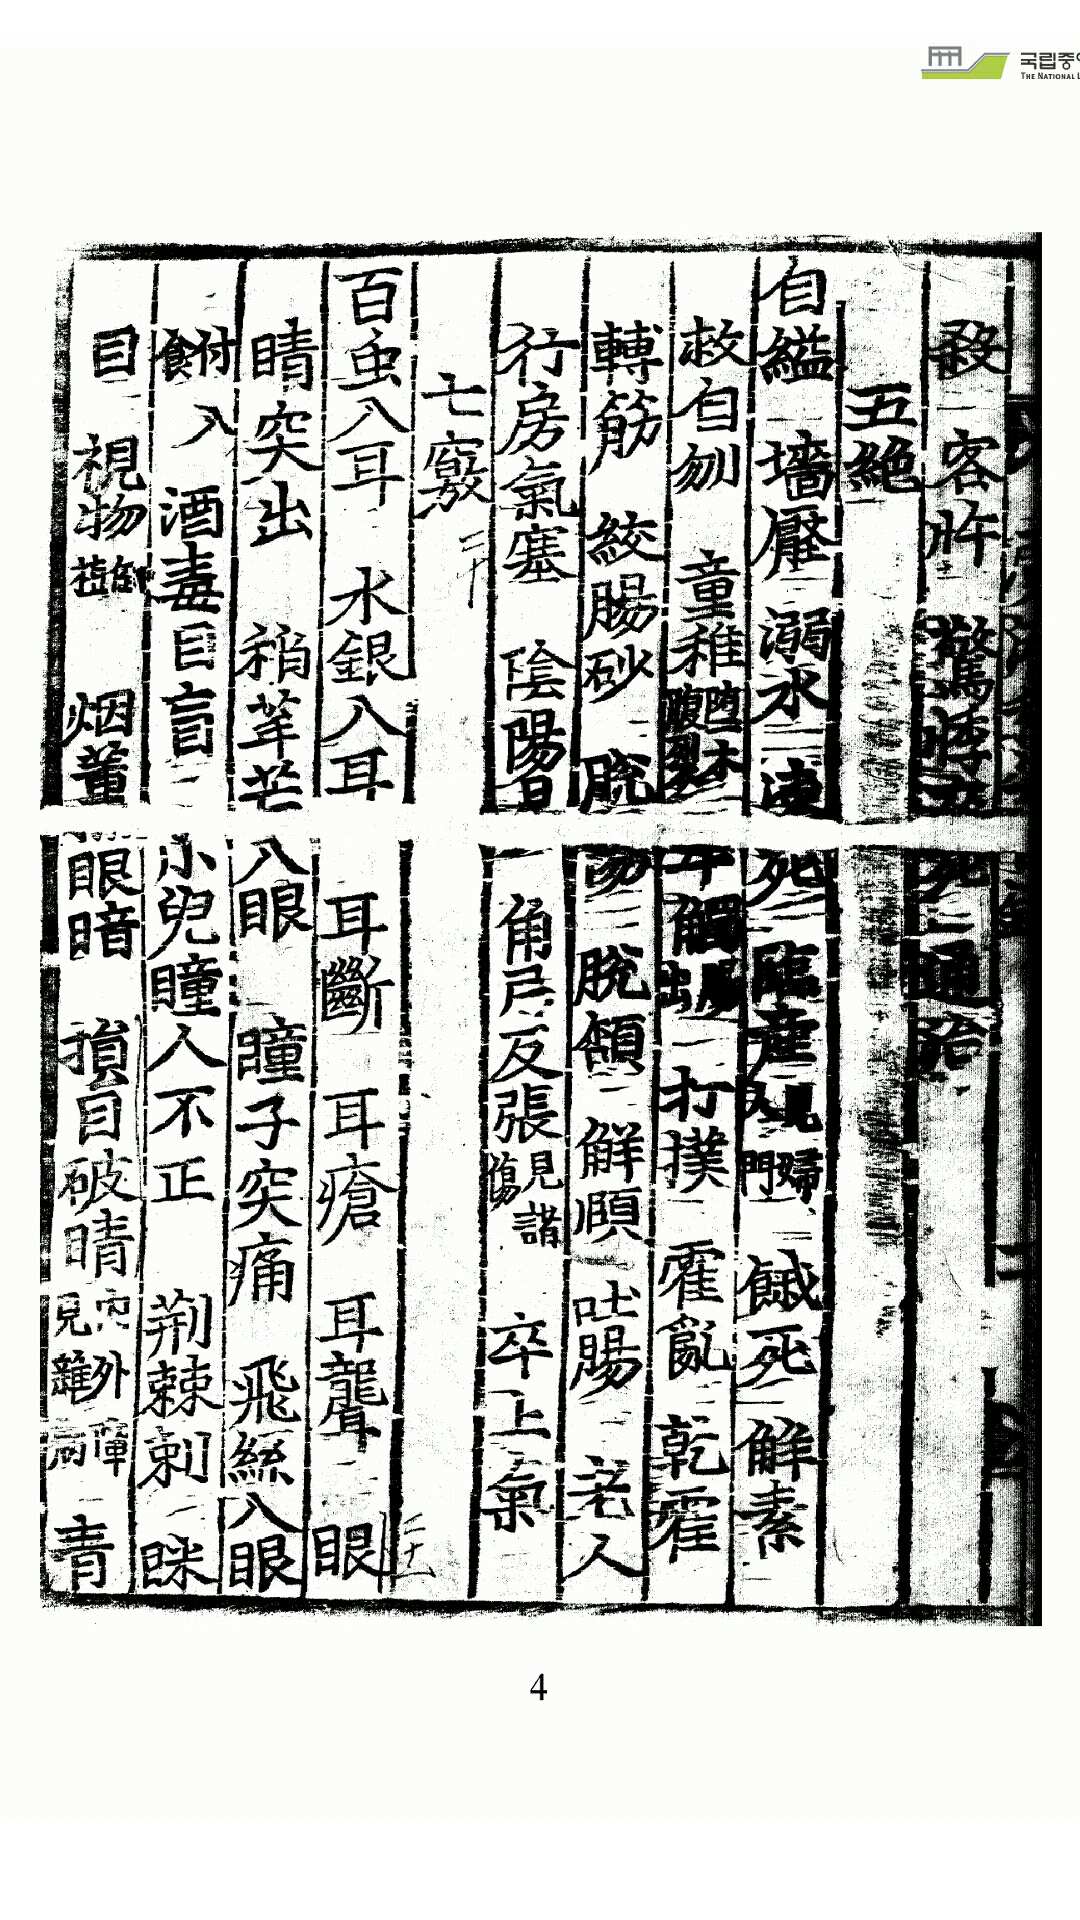 국립중
THE NATIONAL L
客忤 驚悸死 通治
五絶
自縊 墻壓 溺水 凍死 臨産 又見婦門 餓死 解素
救自刎 童稚 墮木腹裂 牛觸腸出 打撲 霍亂 乾霍
轉筋 絞腸砂 脫陽 脫頷 解顊 吐腸 老人
行房氣塞 陰陽易 角弓反張 見諸傷 卒上氣
七竅 二十
二十一
百虫入耳 水銀入耳 耳斷 耳瘡 耳聾 眼
睛突出 稻芒入眼 瞳子突痛 飛絲入眼
付食入 酒毒目盲 小兒瞳人不正 荊棘刺 眯
目 視物倒植 烟薰眼暗 損目破睛 內外見雜病 青
4